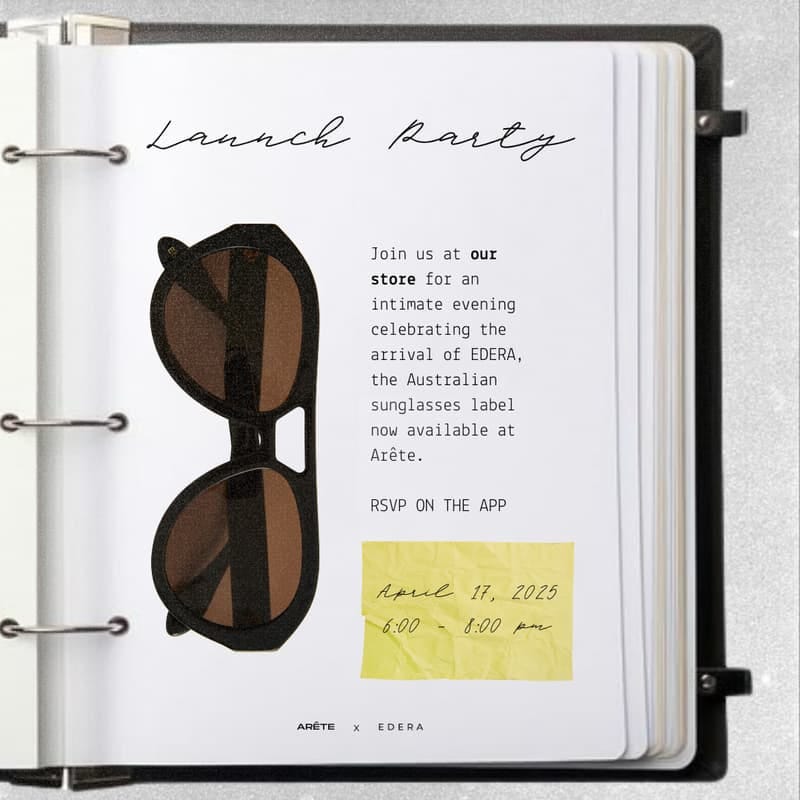 Launch Party
Join us at our
store for an
intimate evening
celebrating the
arrival of EDERA,
the Australian
sunglasses label
now available at
Arête.
RSVP ON THE APP
April 17, 2025
6:00 - 8:00 pm
ARÊTE x EDERA